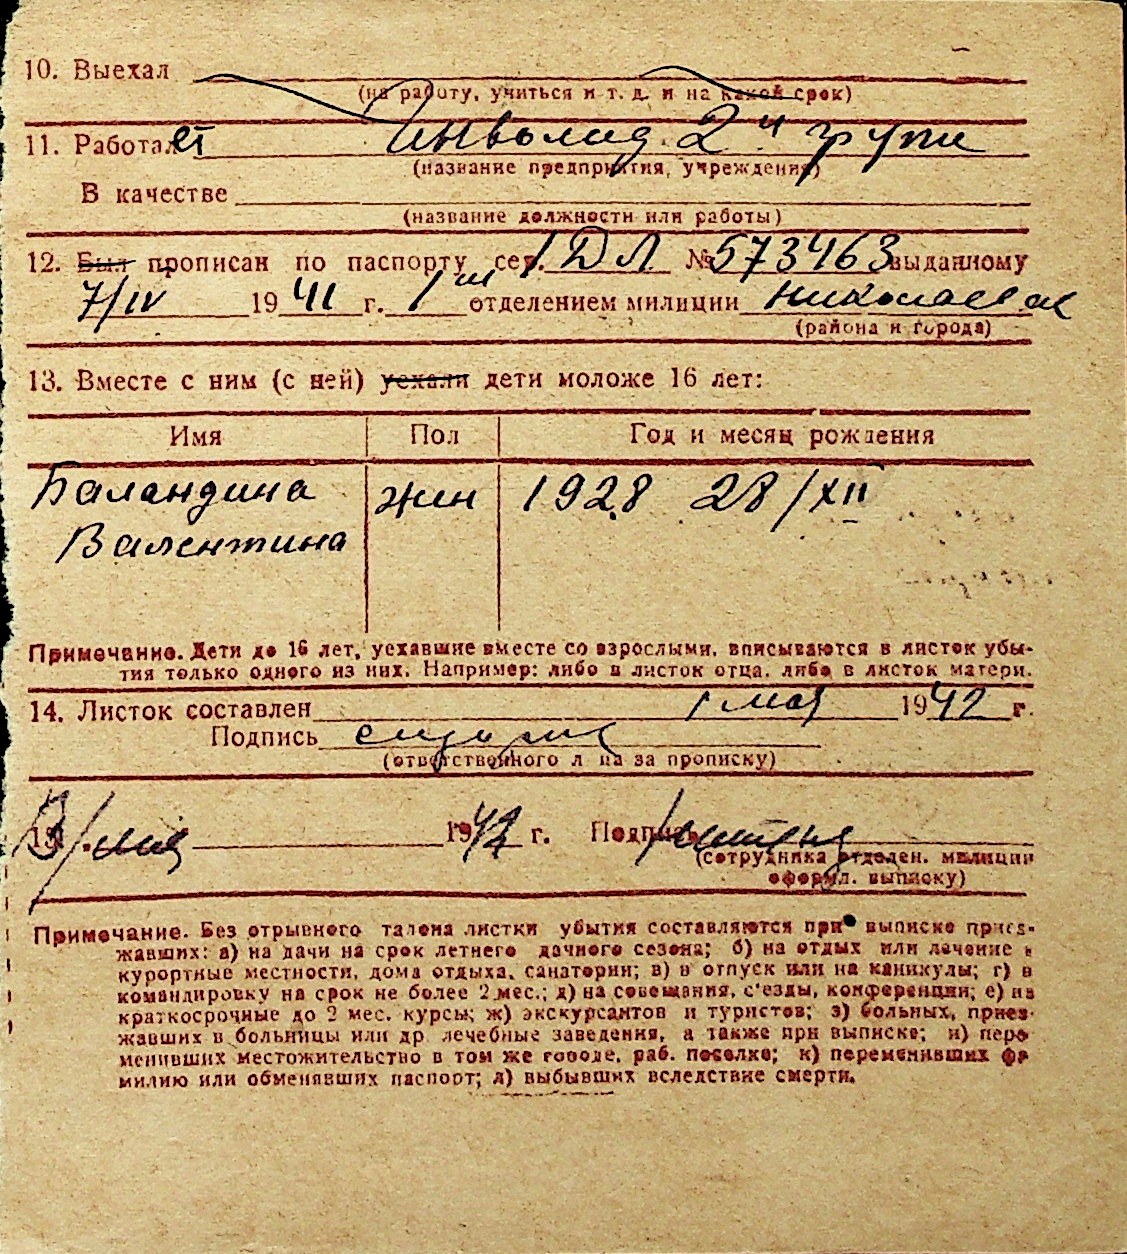 10. Выехал
(на работу, учиться и т. д. и на какой срок)
11. Работает Инволид 2й групи
(название предприятия, учреждения)
В качестве
(название должности или работы)
12. Был прописан по паспорту сер. 1 ДЛ № 573463 выданному
7/IV 1941 г. 1м отделением милиции Николаев
(района и города)
13. Вместе с ним (с ней) уехали дети моложе 16 лет:
Имя Пол Год и месяц рождения
Баландина жен 1928 28/XII
Валентина
Примечание. Дети до 16 лет, уехавшие вместе со взрослыми, вписываются в листок убы-
тия только одного из них. Например: либо в листок отца, либо в листок матери.
14. Листок составлен 1 мая 1942 г.
Подпись
(ответственного лица за прописку)
13/мая 1942 г. Подпись
(сотрудника отделен. милиции
оформл. выписку)
Примечание. Без отрывного талона листки убытия составляются при выписке приез-
жавших: а) на дачи на срок летнего дачного сезона; б) на отдых или лечение в
курортные местности, дома отдыха, санатории; в) в отпуск или на каникулы; г) в
командировку на срок не более 2 мес.; д) на совещания, с'езды, конференции; е) на
краткосрочные до 2 мес. курсы; ж) экскурсантов и туристов; з) больных, приез-
жавших в больницы или др лечебные заведения, а также при выписке; и) пере
менивших местожительство в том же городе, раб. поселке; к) переменивших фа
милию или обменявших паспорт; л) выбывших вследствие смерти.